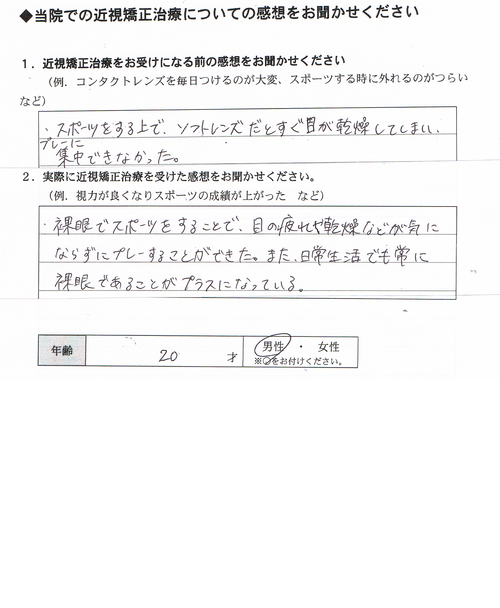 ◆当院での近視矯正治療についての感想をお聞かせください
１．近視矯正治療をお受けになる前の感想をお聞かせください
（例．コンタクトレンズを毎日つけるのが大変、スポーツする時に外れるのがつらい
など）
・スポーツをする上で、ソフトレンズだとすぐ目が乾燥してしまい、
プレーに
集中できなかった。
２．実際に近視矯正治療を受けた感想をお聞かせください。
（例．視力が良くなりスポーツの成績が上がった　など）
・裸眼でスポーツをすることで、目の疲れや乾燥などが気に
ならずにプレーすることができた。また、日常生活でも常に
裸眼であることがプラスになっている。
年齢　20　才　男性　・　女性
※○をお付けください。